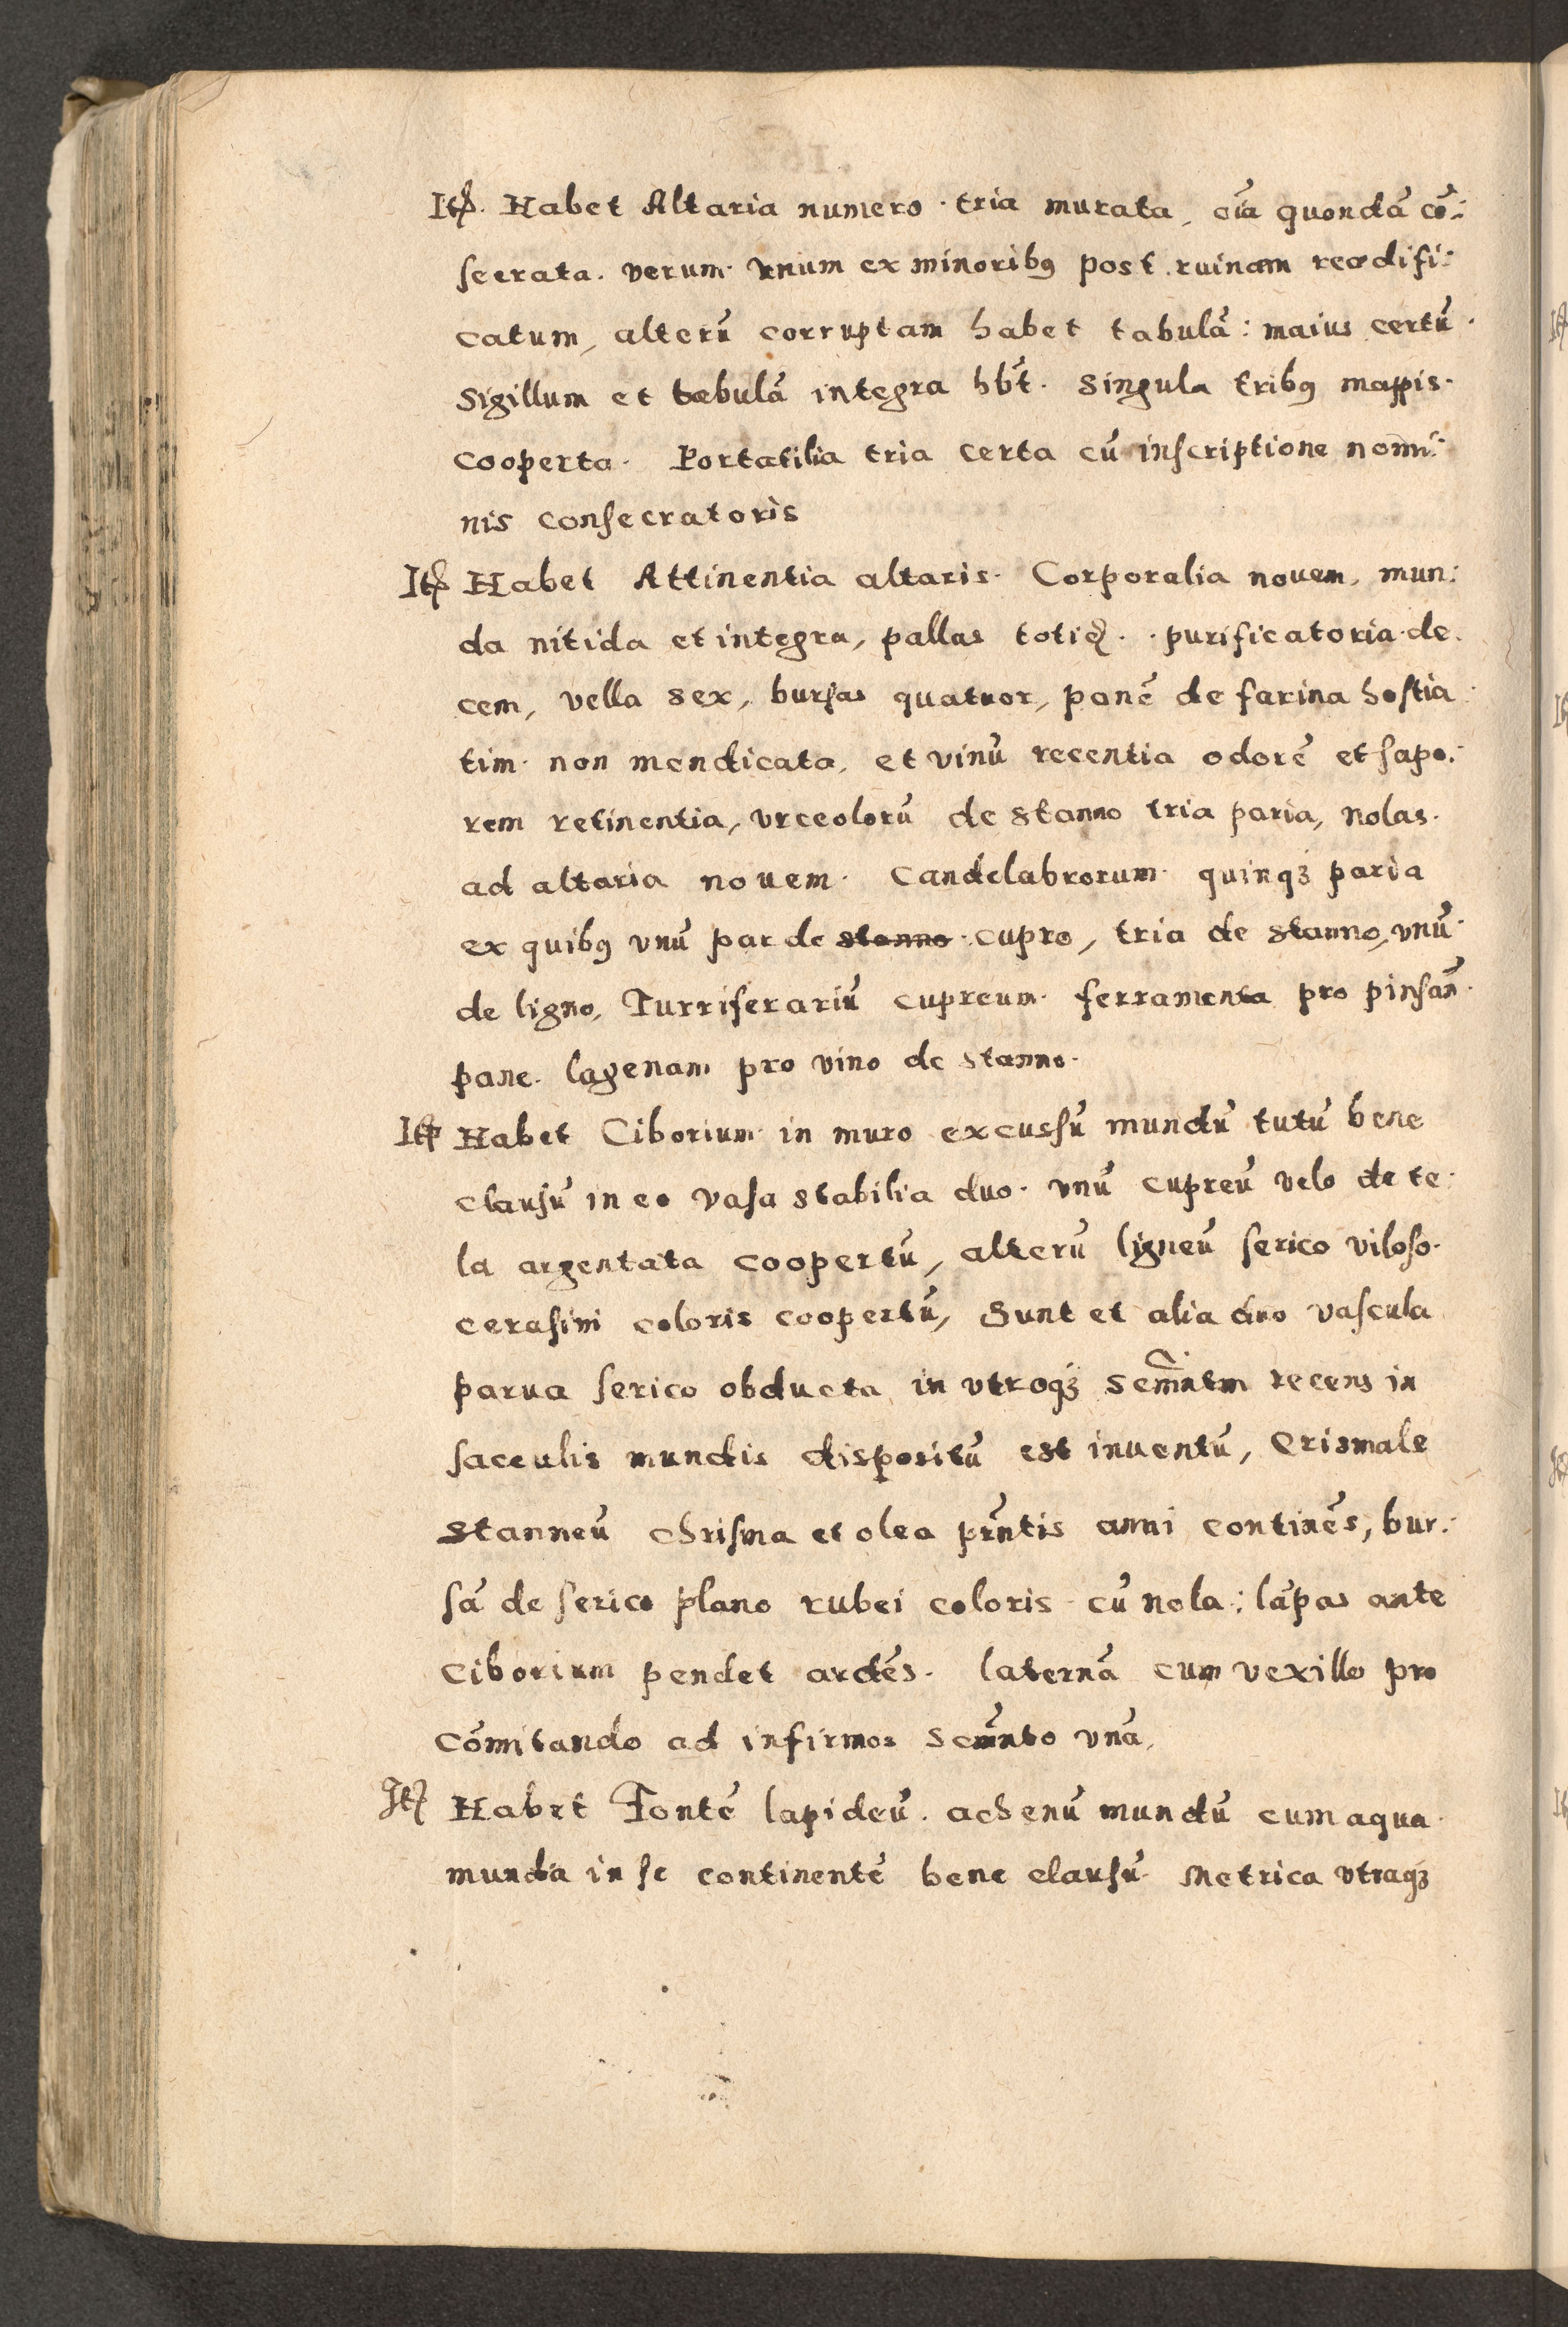 Itē. Habet Altaria numero tria murata, oīa quondā cō:
secrata. verum vnum ex minoribꝫ post ruinam reædifi:
catum, alterū corruptam habet tabulā: maius certū
Sigillum et tabulā integra hb̄t. Singula tribꝫ mappis
cooperta. Portatilia tria certa cū inscriptione nomi:
nis consecratoris
Itē Habet Attinentia altaris. Corporalia nouem, mun:
da nitida et integra, pallas totidē. purificatoria de
cem, vella sex, bursas quatuor, panē de farina hostia
tim non mendicata, et vinū recentia odorē et sapo:
rem retinentia, vrceolorū de stanno tria paria, nolas
ad altaria nouem. Candelabrorum quinqꝫ paria
ex quibꝫ vnū par de stanno cupro, tria de stanno, vnū
de ligno, Turriferariū cupreum. ferramenta pro pinsan̄
pane. lagenam pro vino de stanno.
Itē Habet Ciborium in muro excussū mundū tutū bene
clausū in eo vasa stabilia duo. vnū cupreū velo de te:
la argentata coopertū, alterū ligneū serico viloso
cerasini coloris coopertū, Sunt et alia duo vascula
parua serico obducta in vtroqꝫ Scm̄ntm recens in
sacculis mundis dispositū est inuentū, Crismale
stanneū chrisma et olea pr̄ntis anni continēs, bur:
sā de serico plano rubei coloris cū nola: lāpas ante
Ciborium pendet ardēs. laternā cum vexillo pro
cōmitando ad infirmos Scm̄nto vnā,
Itē Habet Fontē lapideū. achenū mundū cum aqua
munda in se continentē bene clausū. Metrica vtraqꝫ